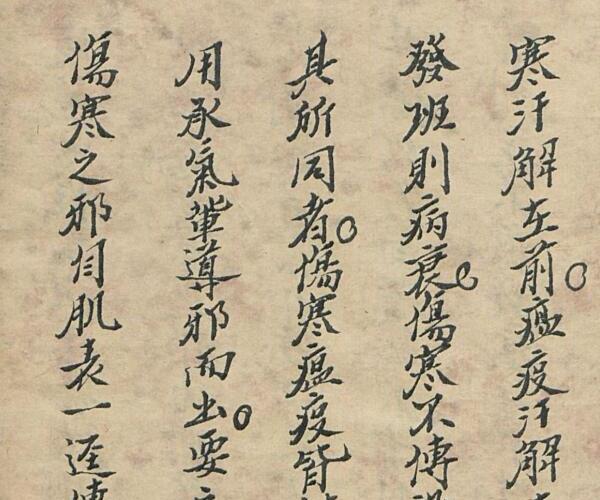 寒汗解在前○瘟疫汗解
發班則病衰○傷寒不傳
其所同者○傷寒瘟疫皆
用承氣軰導邪而出○要
傷寒之邪自肌表一逕傳